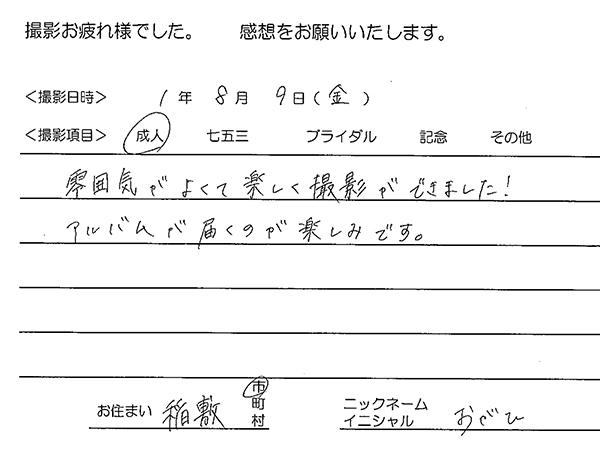 撮影お疲れ様でした。 感想をお願いいたします。
<撮影日時> 1年 8月 9日(金)
<撮影項目> 成人 七五三 ブライダル 記念 その他
雰囲気がよくて楽しく撮影ができました!
アルバムが届くのが楽しみです。
お住まい 稲敷 市町村 ニックネーム イニシャル おがひ